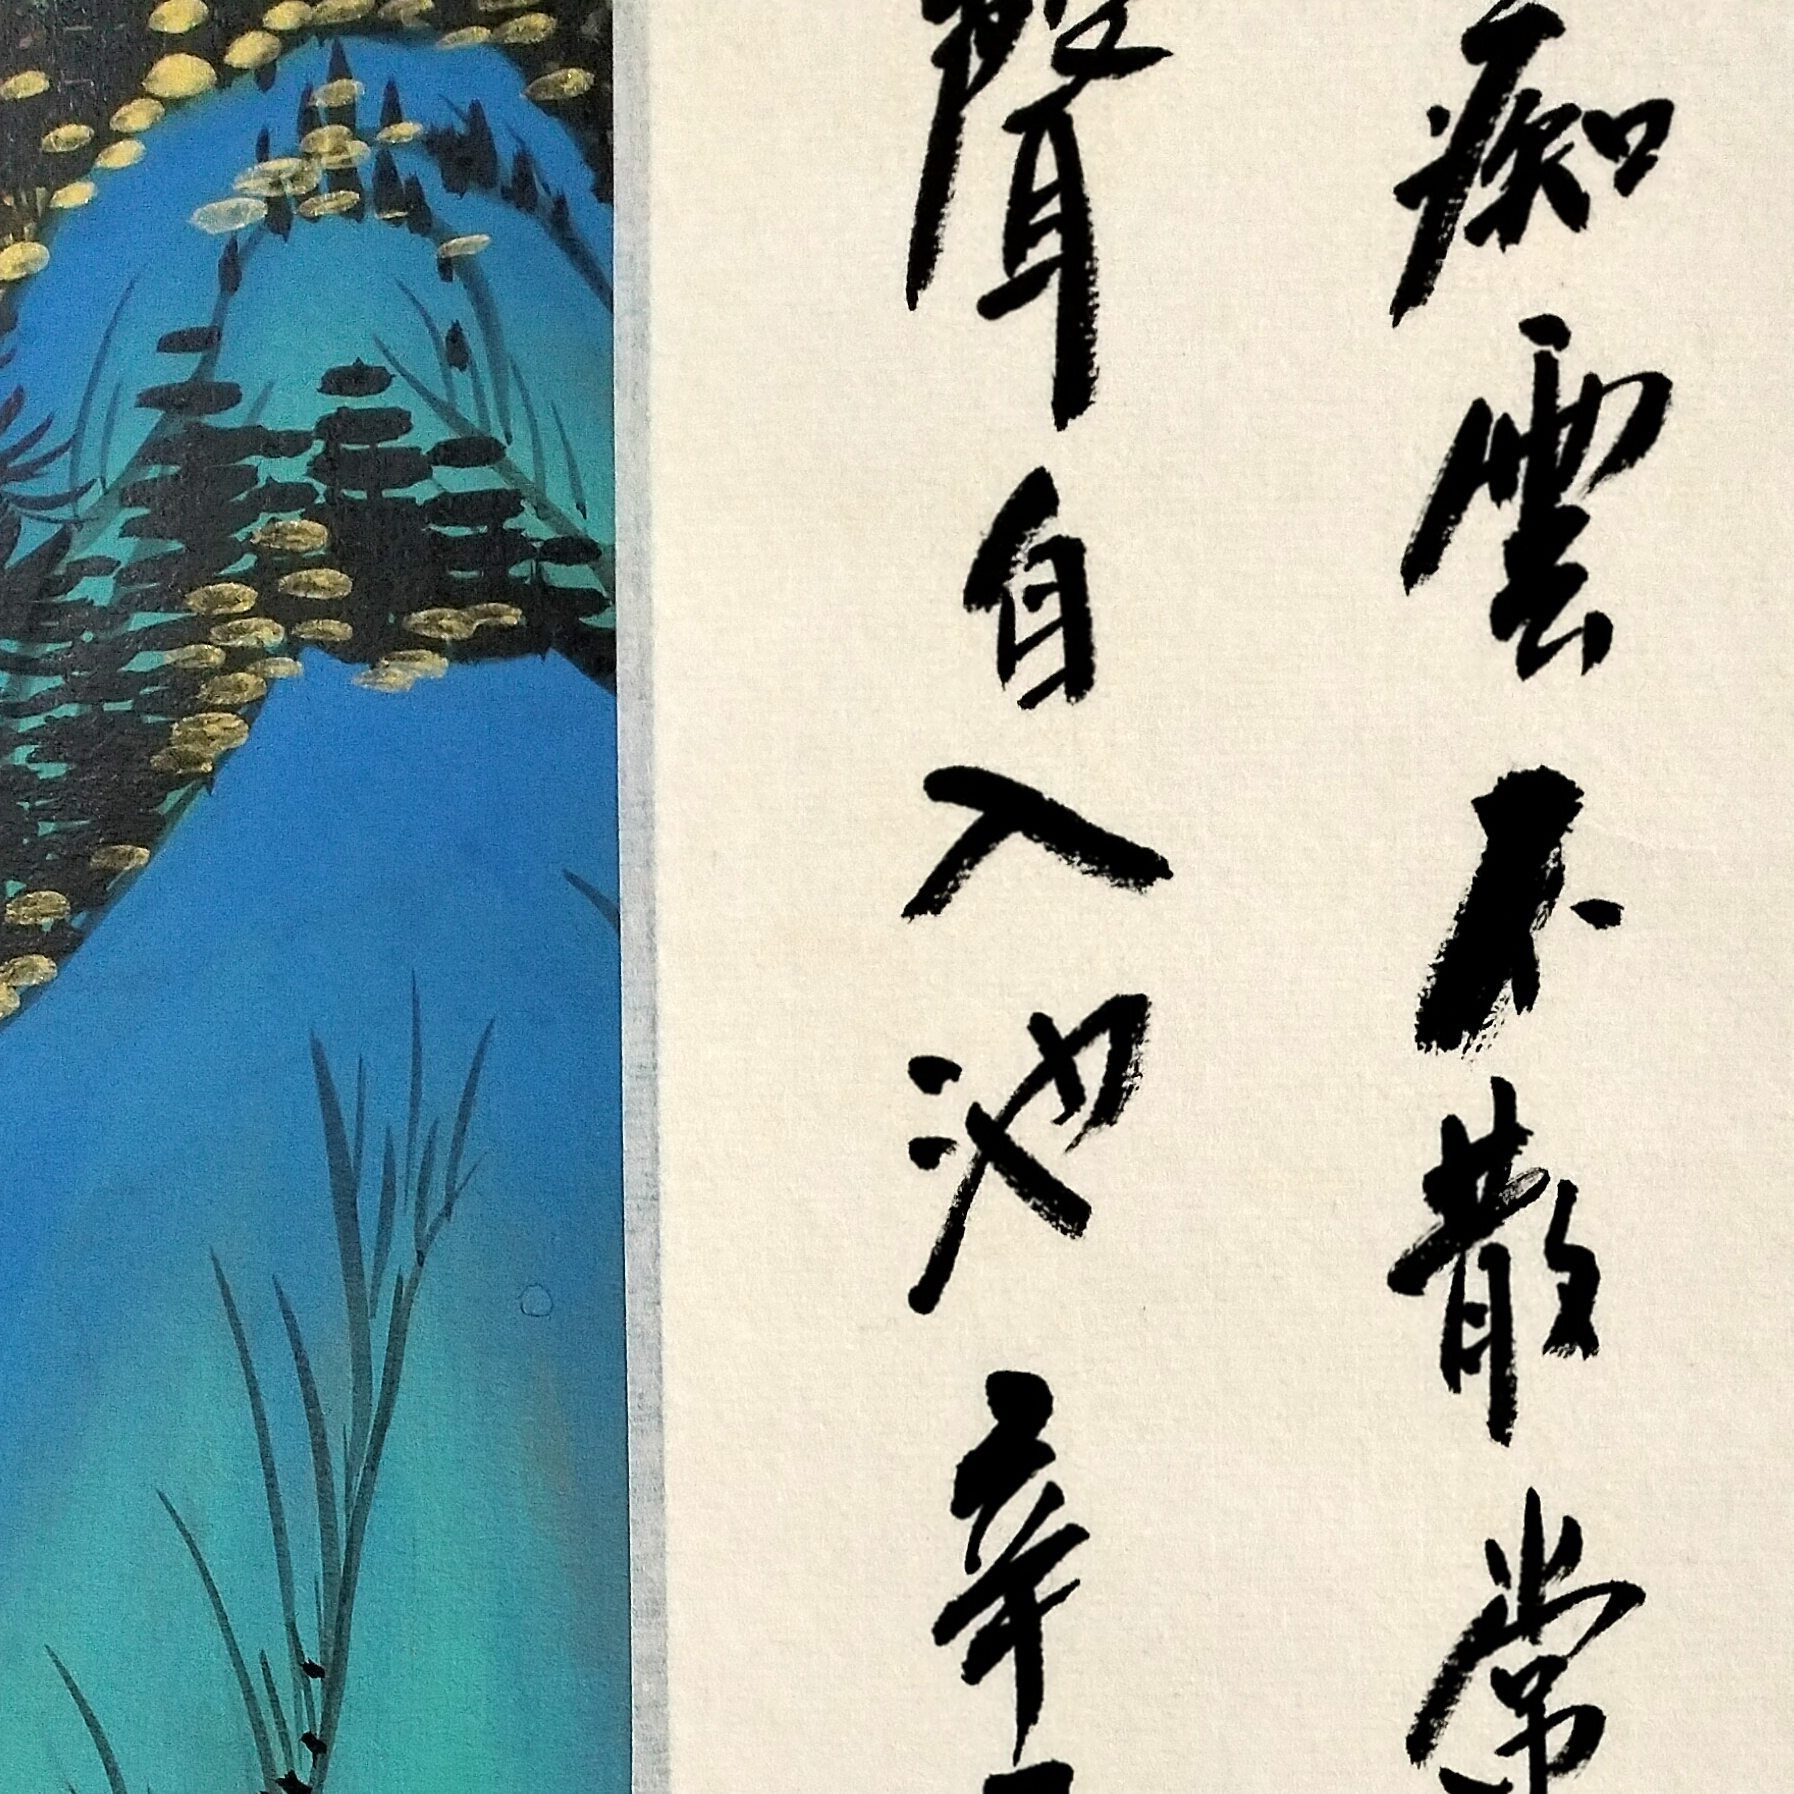 痴雲不散常
聲自入池辛